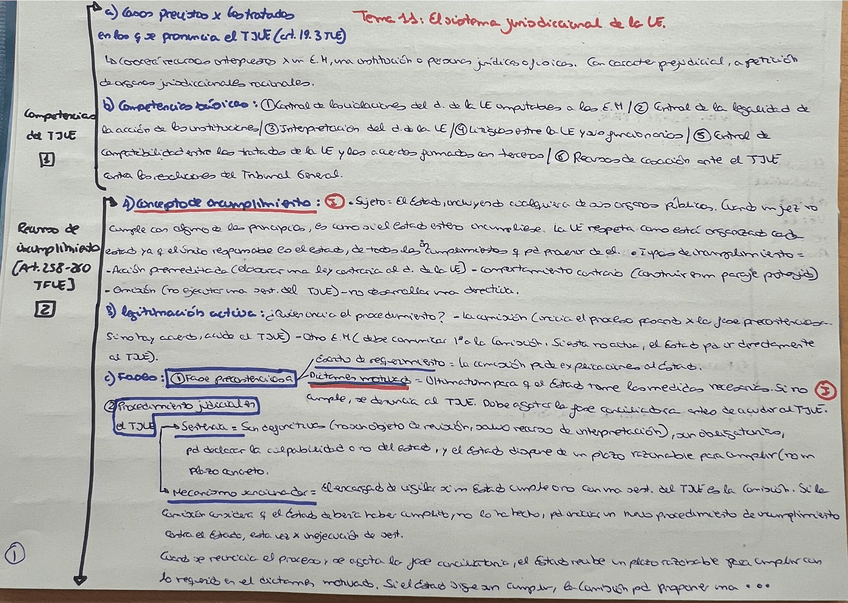 Tema 11: El sistema jurisdiccional de la UE.
a) Casos previstos x los tratados
en los q se pronuncia el TJUE (art. 19.3 TUE)
Lo conocerá recursos interpuestos x un E.M, una institución o personas jurídicas o físicas. Con carácter prejudicial, a petición
de órganos jurisdiccionales nacionales.
Competencias
del TJUE
1
b) Competencias básicas: ① Control de las violaciones del d. de la UE imputables a los E.M / ② Control de la legalidad de
la acción de las instituciones / ③ Interpretación del d. de la UE / ④ Litigios entre la UE y sus funcionarios / ⑤ Control de
compatibilidad entre los tratados de la UE y los acuerdos firmados con terceros / ⑥ Recursos de casación ante el TJUE
contra las resoluciones del Tribunal General.
Recurso de
incumplimiento
[Art. 258-260
TFUE]
2
A) Concepto de incumplimiento: I • Sujeto = El Estado, incluyendo cualquiera de sus órganos públicos. Cuando un juez no
cumple con alguno de los principios, es como si el estado estero incumpliese. La UE respeta como está organizado cada
estado ya q el único responsable es el estado, de todos los incumplimientos q pd provenir de él. • Tipos de incumplimiento =
- Acción premeditada (elaborar una ley contraria al d. de la UE) - comportamiento contrario (construir en un paraje protegido)
- Omisión (no ejecutar una sent. del TJUE) - no desarrollar una directiva.
B) Legitimación activa: ¿Quién inicia el procedimiento? - La comisión (inicia el proceso pasando x la fase precontenciosa.
Si no hay acuerdo, acude al TJUE) - Otro E.M (debe comunicar 1º a la Comisión. Si esta no actúa, el Estado pd ir directamente
al TJUE).
C) Fases: ① Fase precontenciosa
Escrito de requerimiento = la comisión pide explicaciones al Estado.
Dictamen motivado = Ultimátum para q el Estado tome las medidas necesarias. Si no I
cumple, se denuncia al TJUE. Debe agotar la fase conciliadora antes de acudir al TJUE.
② Procedimiento judicial en
el TJUE
Sentencia = Son definitivas (no son objeto de revisión, salvo recurso de interpretación), son obligatorias,
pd declarar la culpabilidad o no del estado, y el Estado dispone de un plazo razonable para cumplir (no un
plazo concreto.
Mecanismo sancionador = El encargado de vigilar si un Estado cumple o no con una sent. del TJUE es la Comisión. Si la
Comisión considera q el Estado debería haber cumplido, no lo ha hecho, pd iniciar un nuevo procedimiento de incumplimiento
contra el Estado, esta vez x inejecución de sent.
Cuando se reinicia el proceso, se agota la fase conciliatoria, el Estado recibe un plazo razonable para cumplir con
lo requerido en el dictamen motivado. Si el Estado sigue sin cumplir, la Comisión pd proponer una ...
①